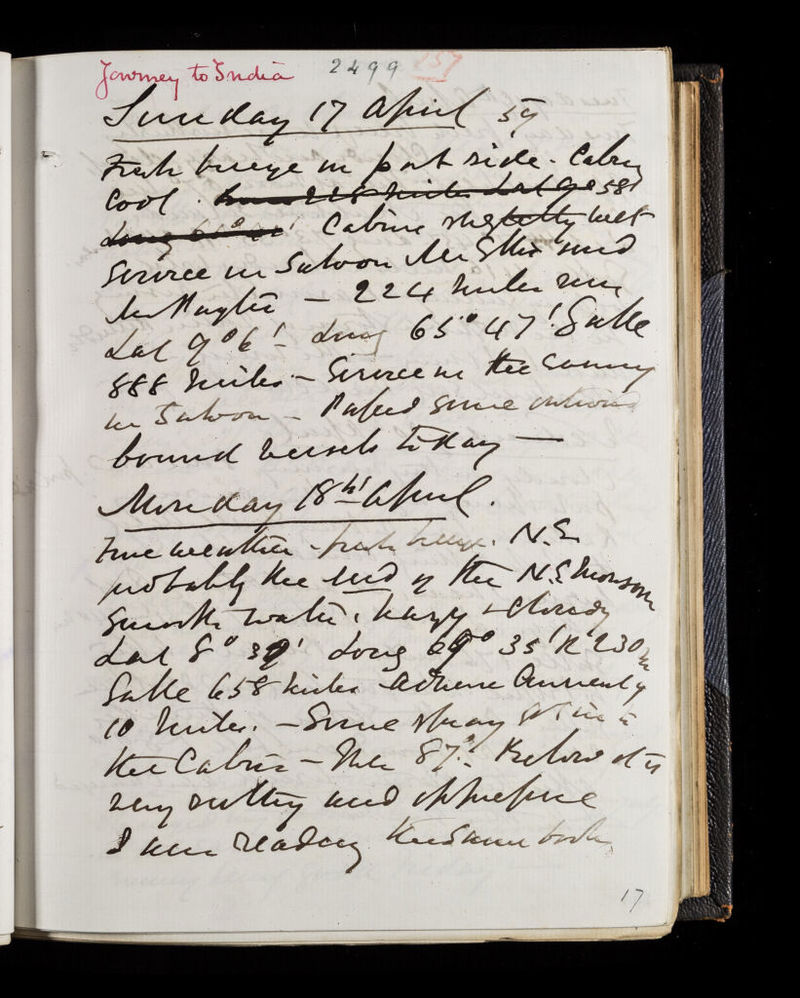 Journey to India 2499 157
Sunday 17 April 59
Fresh breeze on port side. Cabin
Cool. 58'
Long Cabin slightly wet
Service in Saloon Mr Ellis and
Mr - 224 miles run
Lat 9° 6' - Long 65° 47'. Galle
888 miles. - Service in the evening
in Saloon - Passed some outward
bound vessels today -
Monday 18th April.
Fine weather - fresh breeze. N.E.
probably the end of the N.E. Monsoon
Smooth water. hazy & cloudy
Lat 8° 39' Long 69° 35' R 230 m
Galle 658 miles - adverse Current of
10 miles. - Some spray got into
the Cabin - Ther 87°. Below it is
very sultry and oppressive
I am reading the same book
17